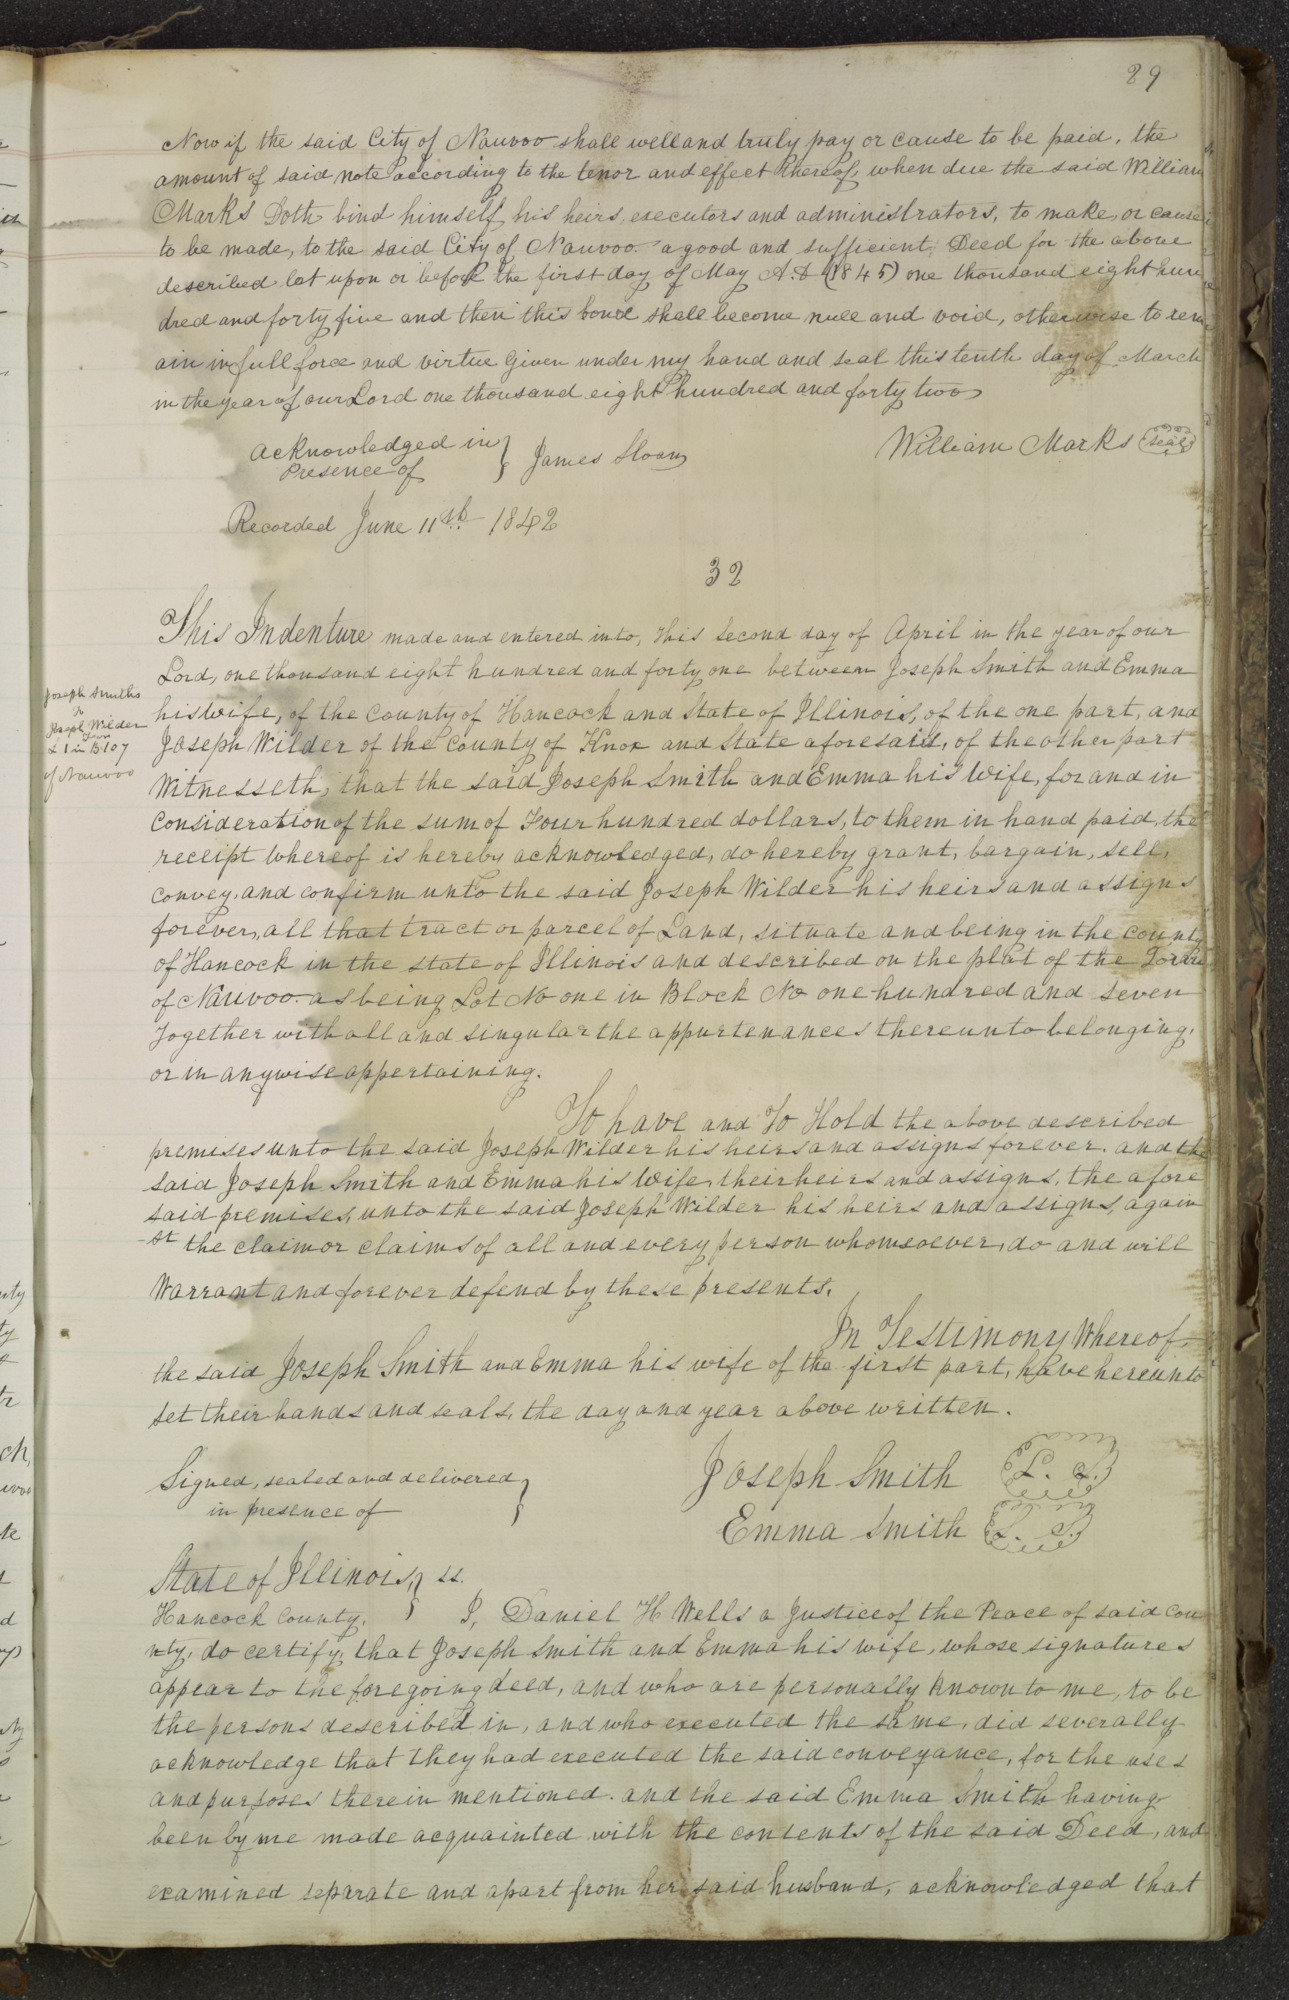 29
Now if the said City of Nauvoo shall well and truly pay or cause to be paid, the
amount of said note according to the tenor and effect thereof, when due the said William
Marks Doth bind himself, his heirs, executors and administrators, to make, or cause
to be made, to the said City of Nauvoo a good and sufficient Deed for the above
described lot upon or before the first day of May A.D (1845) one thousand eight hun
dred and forty five and then this bond shall become null and void, otherwise to rem
ain in full force and virtue Given under my hand and seal this tenth day of March
in the year of our Lord one thousand eight hundred and forty two
Acknowledged in } James Sloan William Marks (seal)
Presence of
Recorded June 11th 1842
32
This Indenture made and entered into, this second day of April in the year of our
Lord, one thousand eight hundred and forty one between Joseph Smith and Emma
his wife, of the County of Hancock and State of Illinois, of the one part, and
Joseph Wilder of the County of Knox and State aforesaid, of the other part
Joseph Smiths
To
Joseph Wilder
L 1 in B 107
of Nauvoo
Witnesseth, that the said Joseph Smith and Emma his Wife, for and in
consideration of the sum of Four hundred dollars, to them in hand paid, the
receipt whereof is hereby acknowledged, do hereby grant, bargain, sell,
convey, and confirm unto the said Joseph Wilder his heirs and assigns
forever, all that tract or parcel of Land, situate and being in the county
of Hancock in the state of Illinois and described on the plat of the Town
of Nauvoo as being Lot No one in Block No one hundred and seven
Together with all and singular the appurtenances thereunto belonging,
or in anywise appertaining.
To have and To Hold the above described
premises unto the said Joseph Wilder his heirs and assigns forever. and the
said Joseph Smith and Emma his Wife, their heirs and assigns, the afore
said premises, unto the said Joseph Wilder his heirs and assigns, again
-st the claim or claims of all and every person whomsoever, do and will
Warrant and forever defend by these presents.
In Testimony Whereof
the said Joseph Smith and Emma his wife of the first part, have hereunto
set their hands and seals, the day and year above written.
Signed, sealed and delivered } Joseph Smith L. S.
in presence of Emma Smith L. S.
State of Illinois, } ss.
Hancock County. I, Daniel H Wells a Justice of the Peace of said cou
nty, do certify, that Joseph Smith and Emma his wife, whose signatures
appear to the foregoing deed, and who are personally known to me, to be
the persons described in, and who executed the same, did severally
acknowledge that they had executed the said conveyance, for the uses
and purposes therein mentioned. and the said Emma Smith having
been by me made acquainted with the contents of the said Deed, and
examined separate and apart from her said husband, acknowledged that